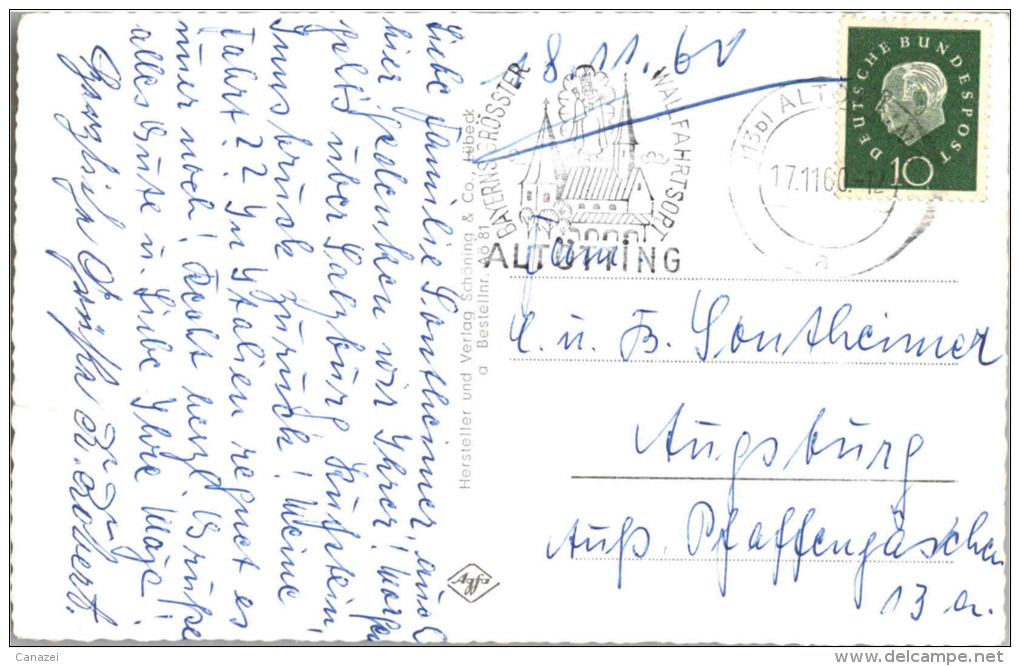 Liebe Familie Sontheimer, auch
hier gedenken wir Ihrer! Morgen
geht's über Salzburg Kufstein,
Innsbruck zurück! Meine
Fahrt?? In Italien regnet es
immer noch! Recht herzl. Grüße
alles Gute u. Liebe Ihre
Herzliche Grüße Robert.
Hersteller und Verlag Schöning & Co., Lübeck
a Bestellnr.
Agfa
18.11.60
BAYERNS GRÖSSTER
WALLFAHRTSORT
ALTÖTTING
17.11.60.-12
a
DEUTSCHE BUNDESPOST
10
Fam.
u. B. Sontheimer
Augsburg
Äuß. Pfaffengäßchen
13 a.
Canazei
www.delcampe.net